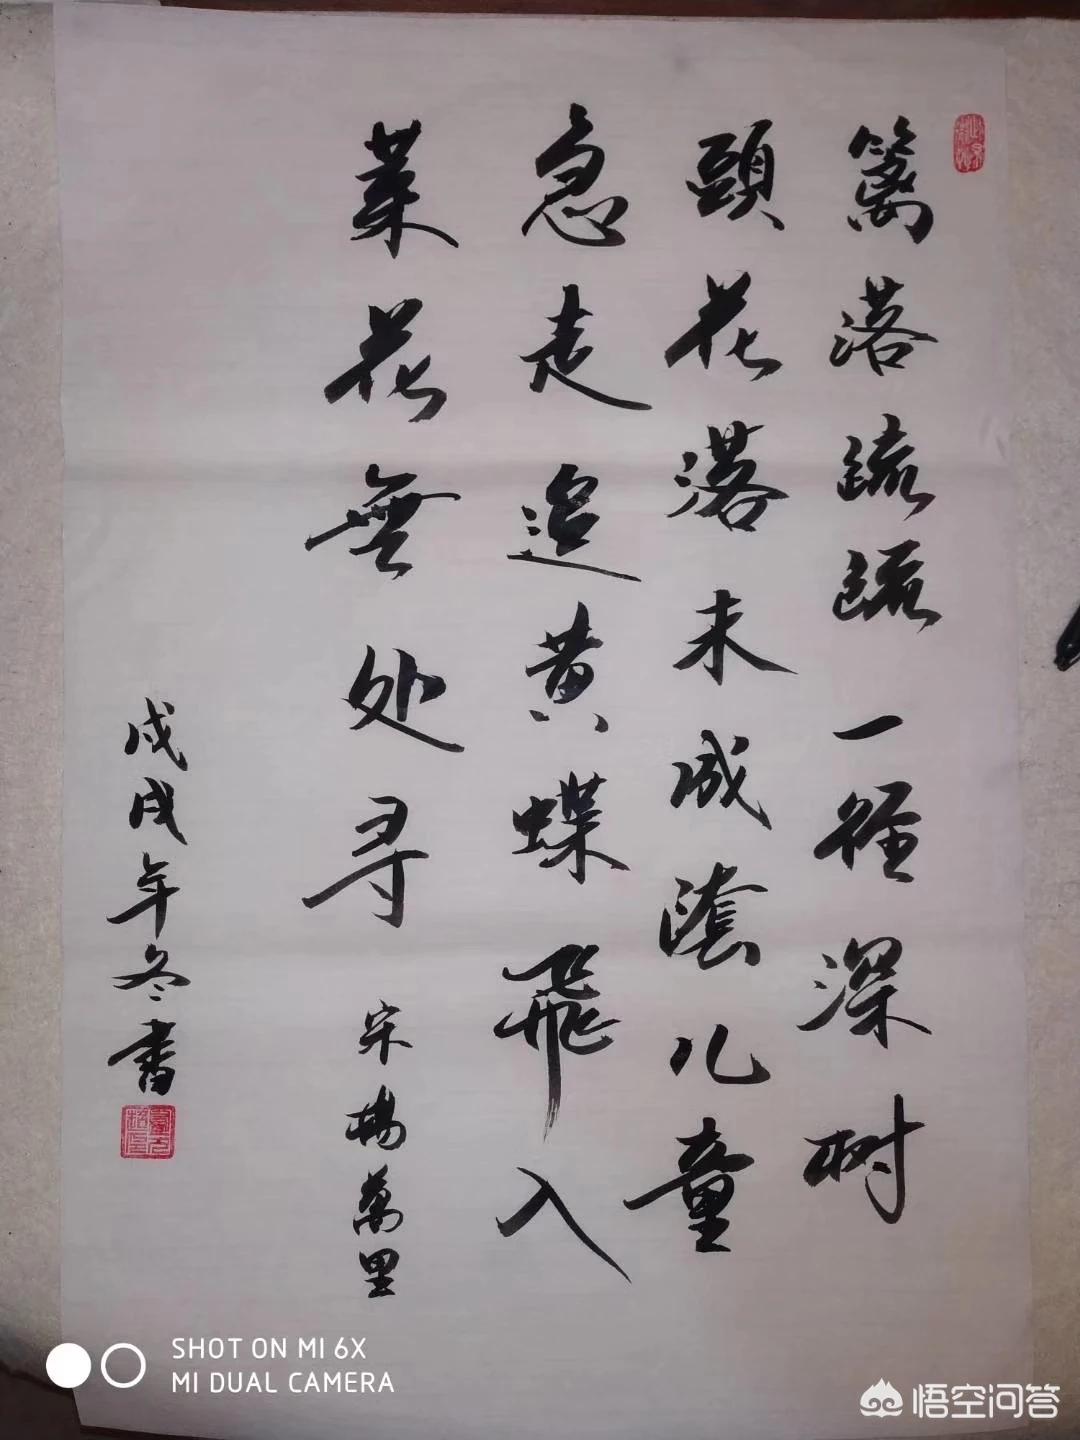 篱落疏疏一径深树
頭花落未成蔭儿童
急走追黄蝶飛入
菜花無处寻 宋楊萬里
戊戌年冬書
SHOT ON MI 6X
MI DUAL CAMERA
悟空问答